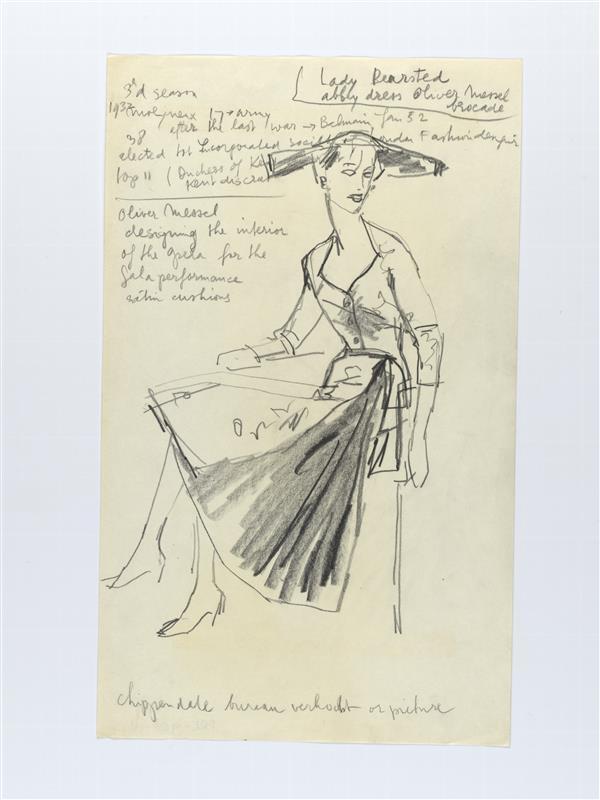 Lady Bearsted
abby dress Oliver Messel
brocade
3d season
1937 Molyneux army
38 after the last war → Jan 52
elected 1st Incorporated Society London Fashion
top 11 (Duchess of Kent
Kent discrat
Oliver Messel
designing the interior
of the opera for the
Gala performance
satin cushions
chippendale bureau verkocht or picture